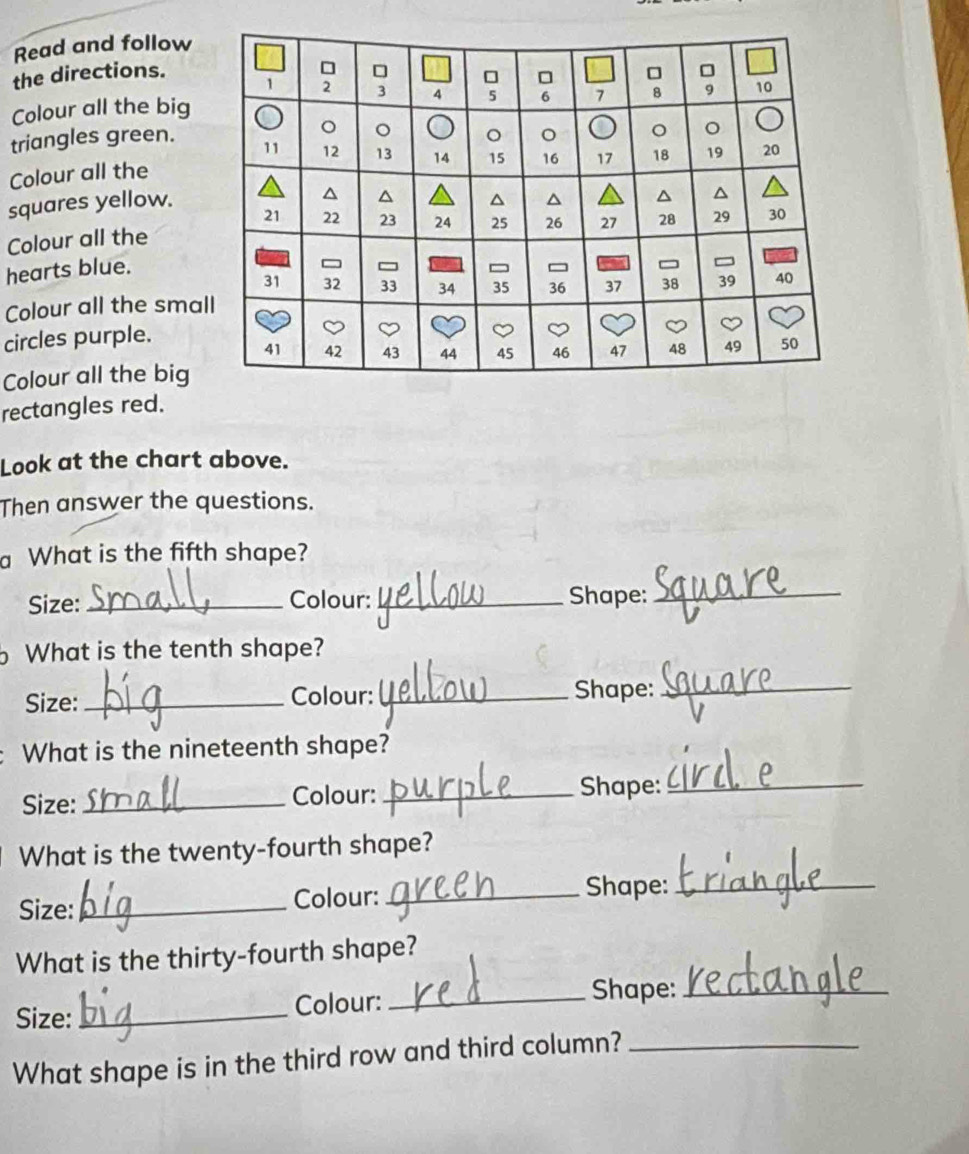 Read and follow
the directions.
Colour all the big
triangles green.
Colour all the
squares yellow.
Colour all the
hearts blue.
Colour all the small
circles purple.
Colour all the big
rectangles red.
1 2 3 4 5 6 7 8 9 10
11 12 13 14 15 16 17 18 19 20
21 22 23 24 25 26 27 28 29 30
31 32 33 34 35 36 37 38 39 40
41 42 43 44 45 46 47 48 49 50
Look at the chart above.
Then answer the questions.
a What is the fifth shape?
Size: small Colour: yellow Shape: Square
What is the tenth shape?
Size: big Colour: yellow Shape: Square
What is the nineteenth shape?
Size: small Colour: purple Shape: circle
What is the twenty-fourth shape?
Size: big Colour: green Shape: triangle
What is the thirty-fourth shape?
Size: big Colour: red Shape: rectangle
What shape is in the third row and third column?